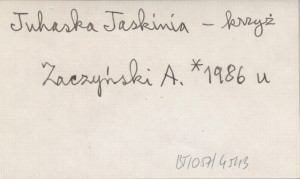 Juhaska Jaskinia – krzyż
Zaczyński A. *1986 u